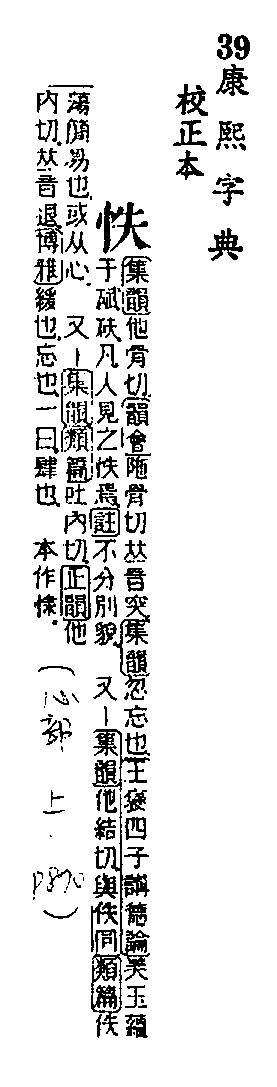 39康熙字典
校正本
怢
集韻他骨切韻會陁骨切𠀤音突集韻忽忘也王褒四子講德論美玉蘊
于碔砆凡人見之怢焉註不分別貌 又丨集韻他結切與佚同類篇佚
蕩簡易也或从心 又丨集韻類篇吐內切正韻他
內切𠀤音退博雅緩也忘也一曰肆也 本作
(心部 上.